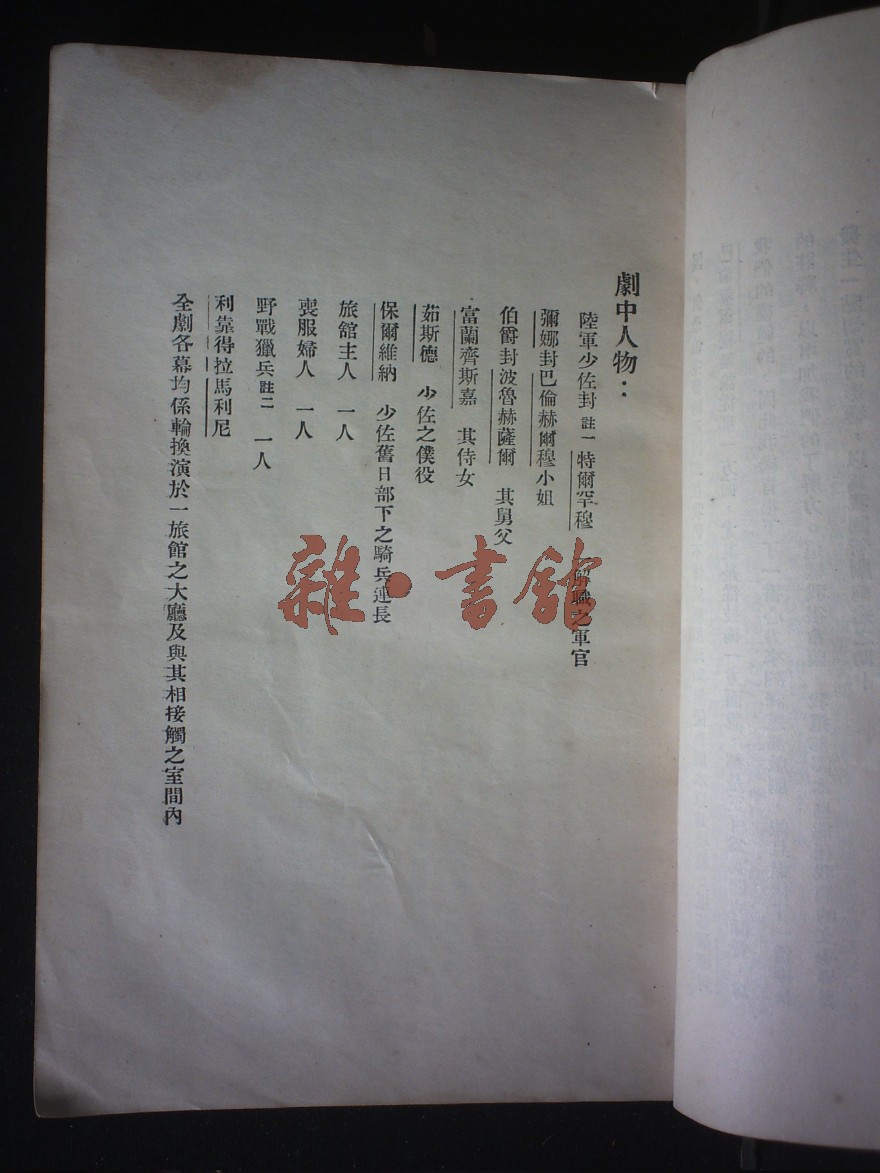 劇中人物：
陸軍少佐封註一特爾罕穆　解職之軍官
彌娜封巴倫赫爾穆小姐
伯爵封波魯赫薩爾　其舅父
富蘭齊斯嘉　其侍女
茹斯德　少佐之僕役
保爾維納　少佐舊日部下之騎兵連長
旅舘主人　一人
喪服婦人　一人
野戰獵兵註二　一人
利靠得拉馬利尼
全劇各幕均係輪換演於一旅館之大廳及與其相接觸之室間內
雜·書舘